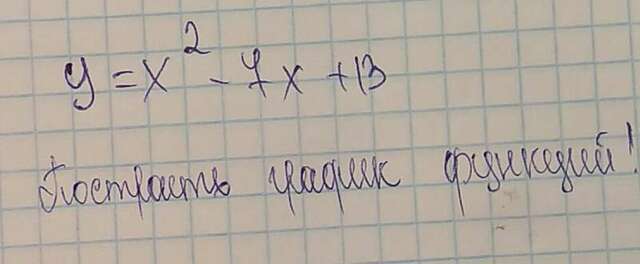 y = x² - 7x + 13
Построить график функций!